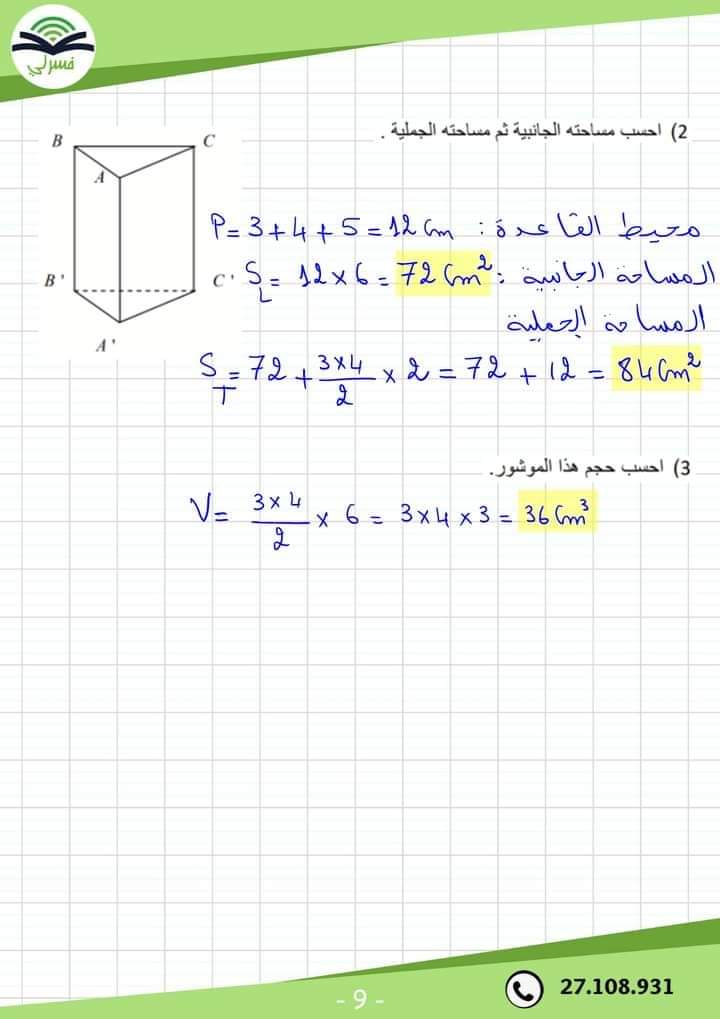 فسرلي
2) احسب مساحته الجانبية ثم مساحته الجملية .
B
C
A
B'
C'
A'
محيط القاعدة : P = 3 + 4 + 5 = 12 cm
المساحة الجانبية : S_L = 12 × 6 = 72 cm²
المساحة الجملية
S_T = 72 + (3 × 4)/2 × 2 = 72 + 12 = 84 cm²
3) احسب حجم هذا الموشور.
V = (3 × 4)/2 × 6 = 3 × 4 × 3 = 36 cm³
- 9 -
27.108.931